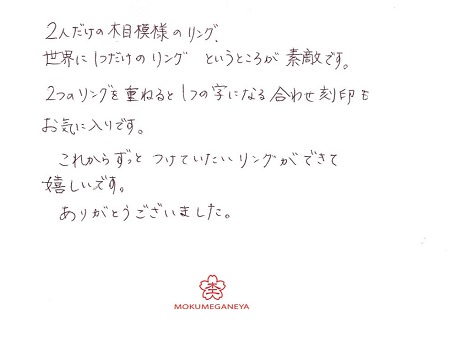 2人だけの木目模様のリング、
世界に1つだけのリング というところが 素敵です。
2つのリングを重ねると1つの字になる合わせ刻印も
お気に入りです。
これからずっと つけていたいリングができて
嬉しいです。
ありがとうございました。
MOKUMEGANEYA